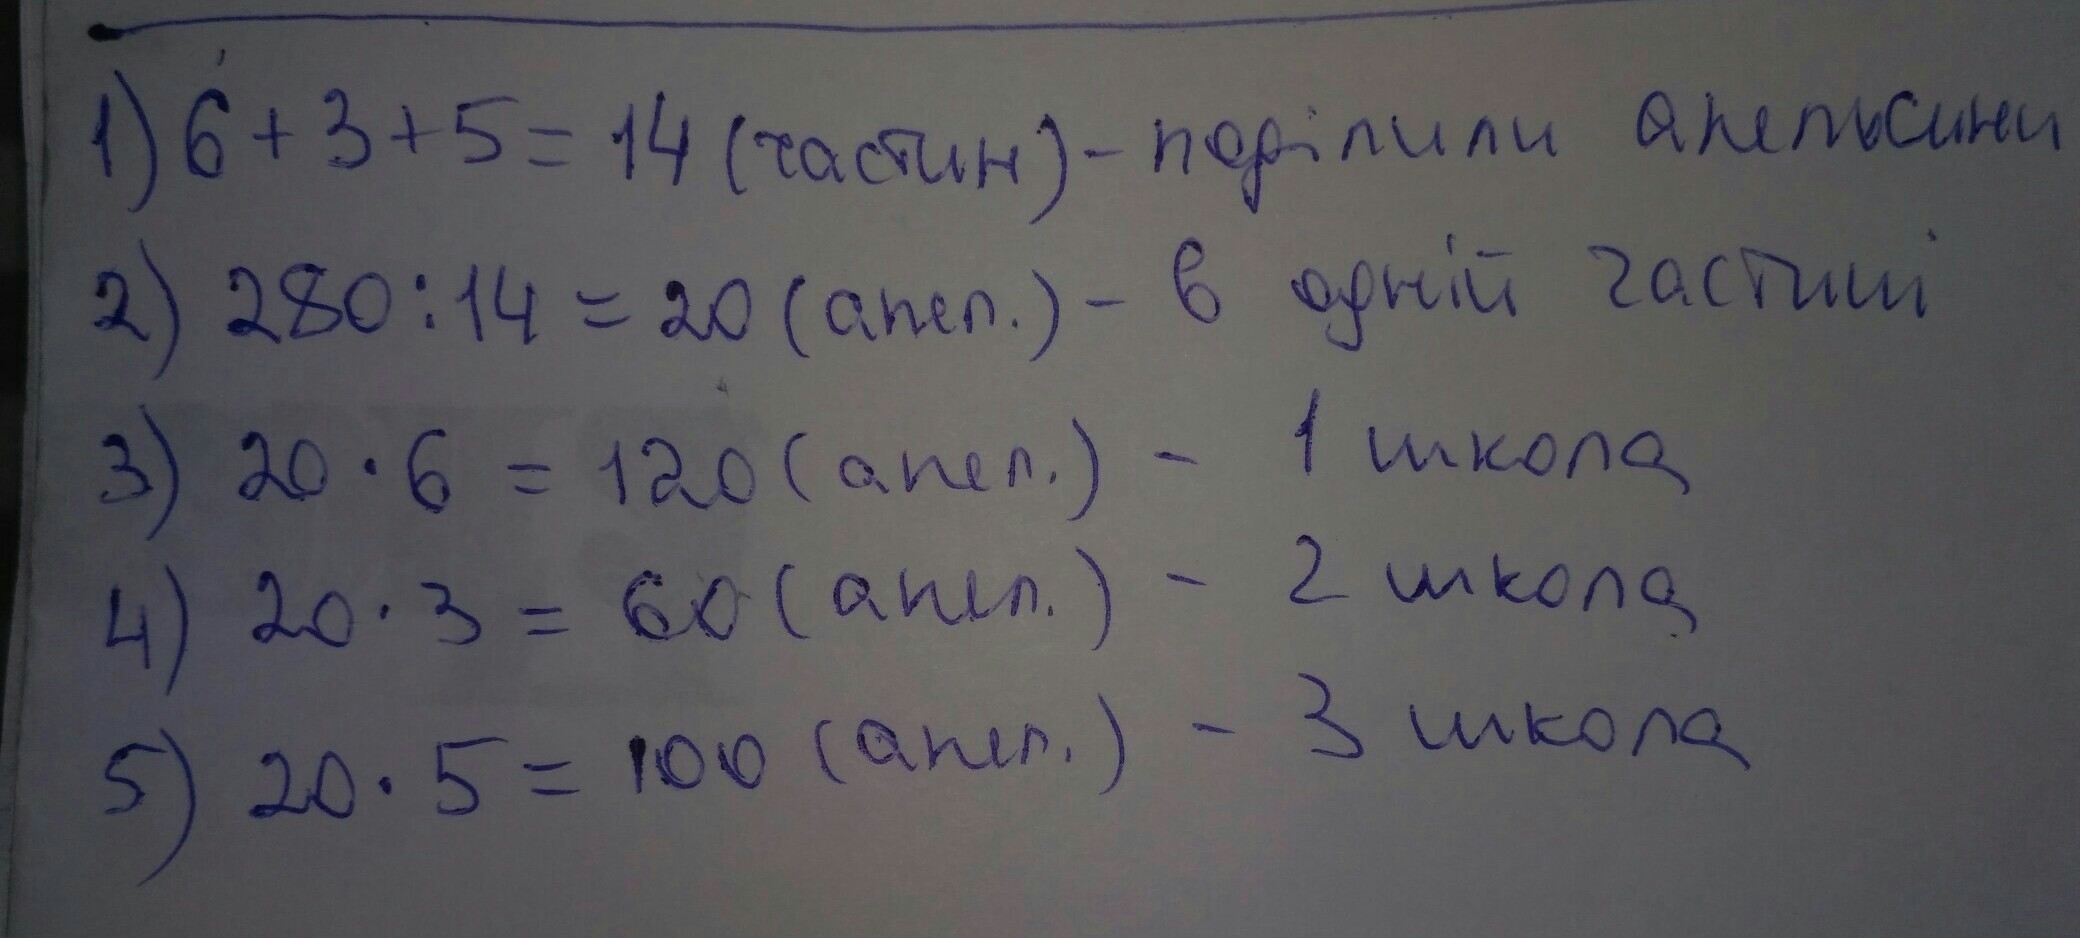 1) 6 + 3 + 5 = 14 (частин) - поділили апельсини
2) 280 : 14 = 20 (апел.) - в одній частині
3) 20 · 6 = 120 (апел.) - 1 школа
4) 20 · 3 = 60 (апел.) - 2 школа
5) 20 · 5 = 100 (апел.) - 3 школа